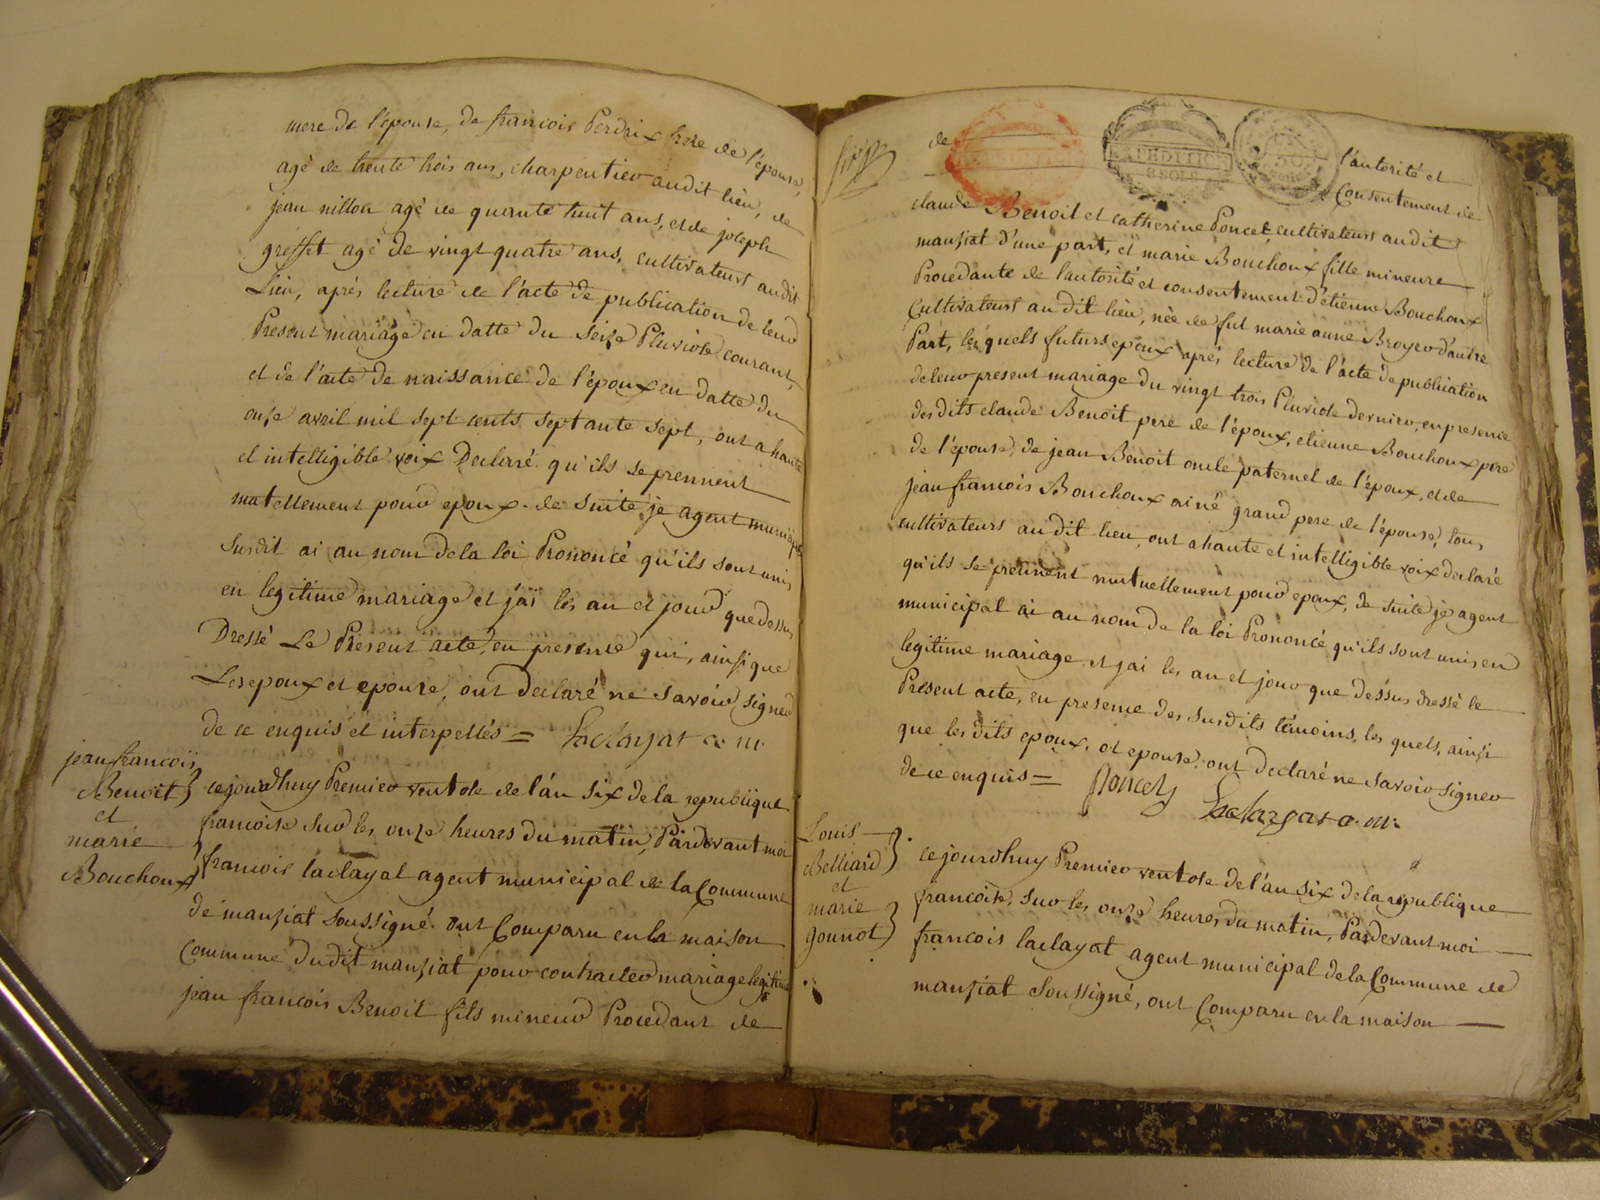 mere de l'épouse, de françois Perdrix frere de l'épouse,
agé de trente trois ans, charpentier audit lieu, de
jean nillon agé de quante huit ans, et de joseph
greffet agé de vingt quatre ans, cultivateurs audit
Lieu, aprés lecture de l'acte de publication de leur
Present mariage en datte du seize Pluviose courant,
et de l'acte de naissance de l'époux en datte du
onze avril mil sept cents septante sept, ont a haute
et intelligible voix Declaré qu'ils se prennent
matellement pour epoux. de suite je agent municipal
susdit ai au nom de la loi Prononcé qu'ils sont unis
en legitime mariage et j'ai les an et jour que dessus
Dressé Le Present acte, en presence qui, ainsi que
Les epoux et epouse, ont declaré ne savoir signer
de ce enquis et interpellés = Laclayat a. m.
jean françois
Benoit
et
marie
Bouchoux
cejourdhuy Premier ventose de l'an six de la republique
francoise sur les onze heures du matin, Pardevant moi
francois laclayat agent municipal de la Commune
de manziat soussigné. ont Comparu en la maison
Commune dudit manziat pour contracter mariage legitime
jean francois Benoit fils mineur Procedant de
de l'autorité et
Consentement de
claude Benoit et catherine Poncet, cultivateurs audit
manziat d'une part, et marie Bouchoux fille mineure
Procedante de l'autorité et consentement d'étienne Bouchoux
Cultivateurs audit lieu, née de fut marie anne Broyer d'autre
Part, lesquels futurs epoux aprés lecture de l'acte de publication
de leur present mariage du vingt trois Pluviose dernier, en presence
desdits claude Benoit pere de l'époux, etienne Bouchoux pere
de l'épouse, de jean Benoit oncle paternel de l'époux, et de
jean francois Bouchoux ainé grand pere de l'épouse, tous
cultivateurs audit lieu, ont a haute et intelligible voix declaré
qu'ils se prennent mutuellement pour epoux, de suite je agent
municipal ai au nom de la loi Prononcé qu'ils sont unis, en
legitime mariage, et j'ai les an et jour que dessus dressé le
Present acte, en presence des susdits témoins, les quels, ainsi
que les dits epoux. et epouse. ont declaré ne savoir signer
de ce enquis = Poncet Laclayat a. m.
Louis
Belliard
et
marie
gonnot
cejourdhuy Premier ventose de l'an six de la republique
francoise, sur les onze heures du matin, Pardevant moi
francois laclayat agent municipal de la Commune de
manziat soussigné, ont Comparu en la maison